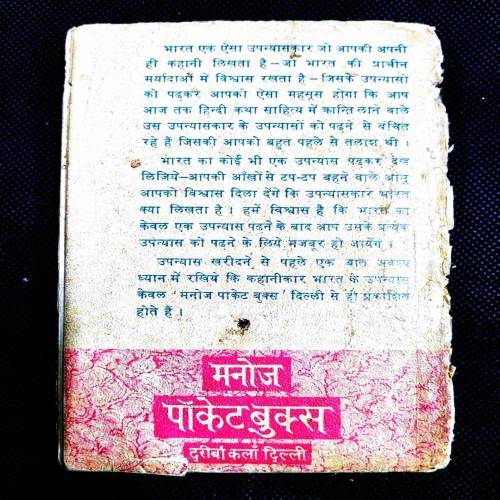 भारत एक ऐसा उपन्यासकार जो आपकी अपनी
ही कहानी लिखता है—जो भारत की प्राचीन
मर्यादाओं में विश्वास रखता है—जिसके उपन्यासों
को पढ़कर आपको ऐसा महसूस होगा कि आप
आज तक हिन्दी कथा साहित्य में क्रान्ति लाने वाले
उस उपन्यासकार के उपन्यासों को पढ़ने से वंचित
रहे हैं जिसकी आपको बहुत पहले से तलाश थी ।
भारत का कोई भी एक उपन्यास पढ़कर देख
लिजिये—आपकी आँखों से टप-टप बहने वाले आँसू
आपको विश्वास दिला देंगे कि उपन्यासकार भारत
क्या लिखता है । हमें विश्वास है कि भारत का
केवल एक उपन्यास पढ़ने के बाद आप उसके प्रत्येक
उपन्यास को पढ़ने के लिये मजबूर हो जायेंगे ।
उपन्यास खरीदने से पहले एक बात अवश्य
ध्यान में रखिये कि कहानीकार भारत के उपन्यास
केवल 'मनोज पाकेट बुक्स' दिल्ली से ही प्रकाशित
होते हैं ।
मनोज
पॉकेट बुक्स
दरीबा कलां दिल्ली